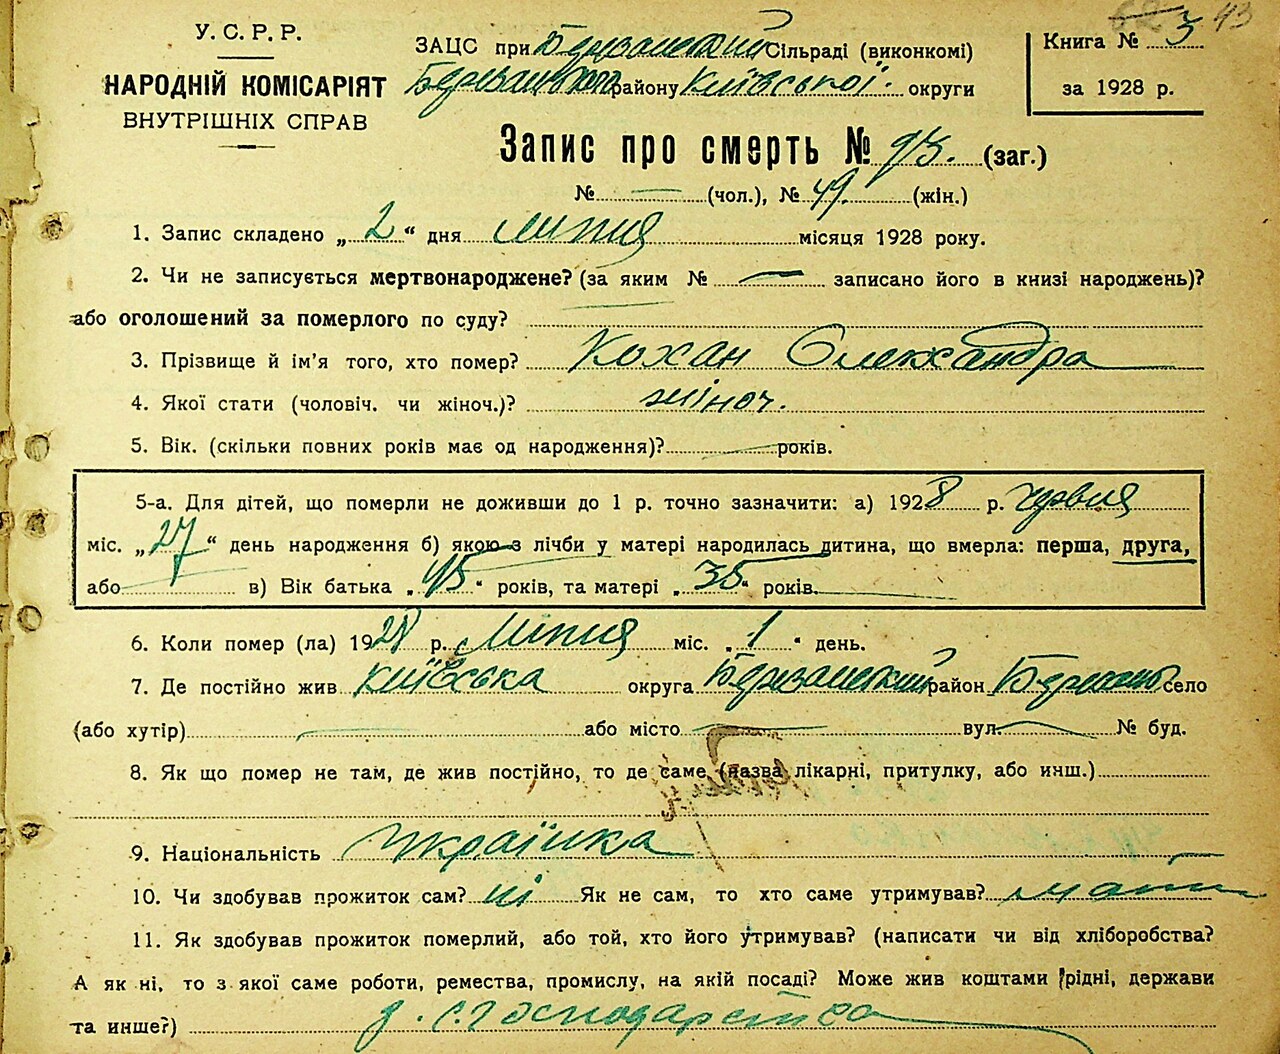 43
У. С. Р. Р.
НАРОДНІЙ КОМІСАРІЯТ
ВНУТРІШНІХ СПРАВ
ЗАЦС при Березанський Сільраді (виконкомі)
Березанського району Київської округи
Книга № 3
за 1928 р.
Запис про смерть № 95. (заг.)
№ — (чол.), № 49. (жін.)
1. Запис складено „ 2 “ дня липня місяця 1928 року.
2. Чи не записується мертвонароджене? (за яким № — записано його в книзі народжень)?
або оголошений за померлого по суду?
3. Прізвище й ім’я того, хто помер? Кохан Олександра
4. Якої стати (чоловіч. чи жіноч.)? жіноч.
5. Вік. (скільки повних років має од народження)? — років.
5-а. Для дітей, що померли не доживши до 1 р. точно зазначити: а) 1928 р. червня
міс. „ 27 “ день народження б) якою з лічби у матері народилась дитина, що вмерла: перша, друга,
або — в) Вік батька „ 45 “ років, та матері „ 35 “ років.
6. Коли помер (ла) 1928 р. Липня міс. „ 1 “ день.
7. Де постійно жив Київська округа Березанський район Березань село
(або хутір) — або місто — вул. — № буд.
8. Як що помер не там, де жив постійно, то де саме (назва лікарні, притулку, або инш.)
9. Національність Українка
10. Чи здобував прожиток сам? ні Як не сам, то хто саме утримував? мати
11. Як здобував прожиток померлий, або той, хто його утримував? (написати чи від хліборобства?
А як ні, то з якої саме роботи, ремества, промислу, на якій посаді? Може жив коштами рідні, держави
та инше?) з с. господарства